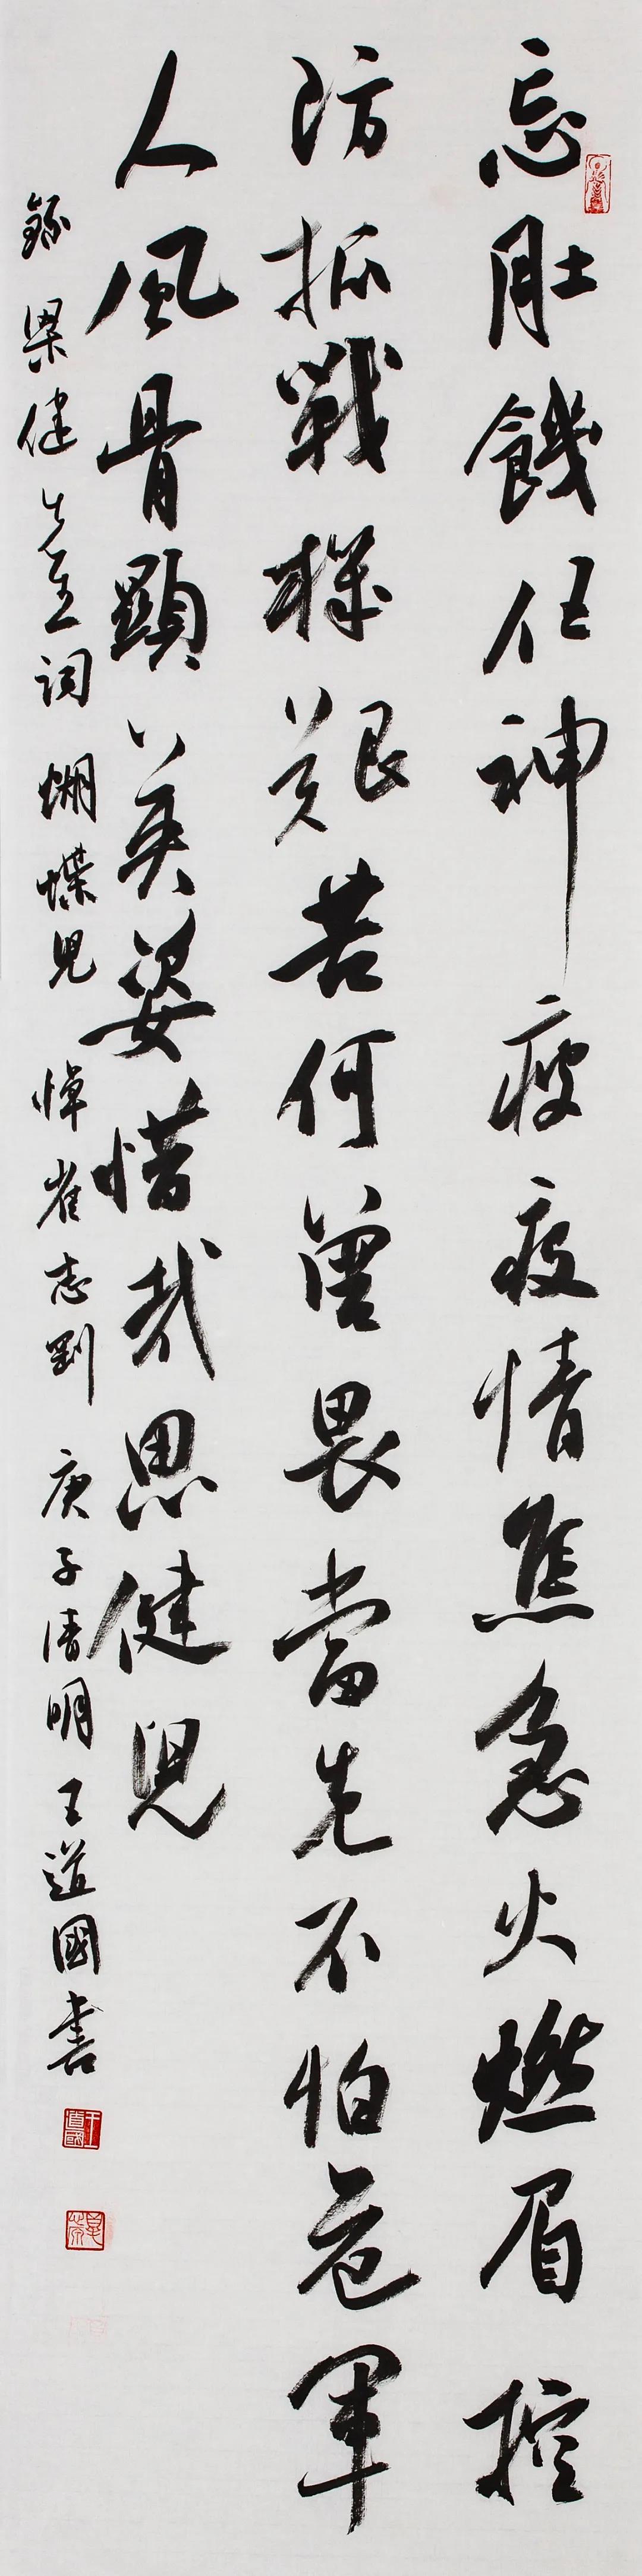 忘肚饑任神疲疫情焦急火燃眉控
防抓戰機艱苦何曾畏當先不怕危軍
人風骨顯英姿惜哉思健兒
錄梁健先生詞蝴蝶兒悼崔志剛庚子清明王道國書
王道國